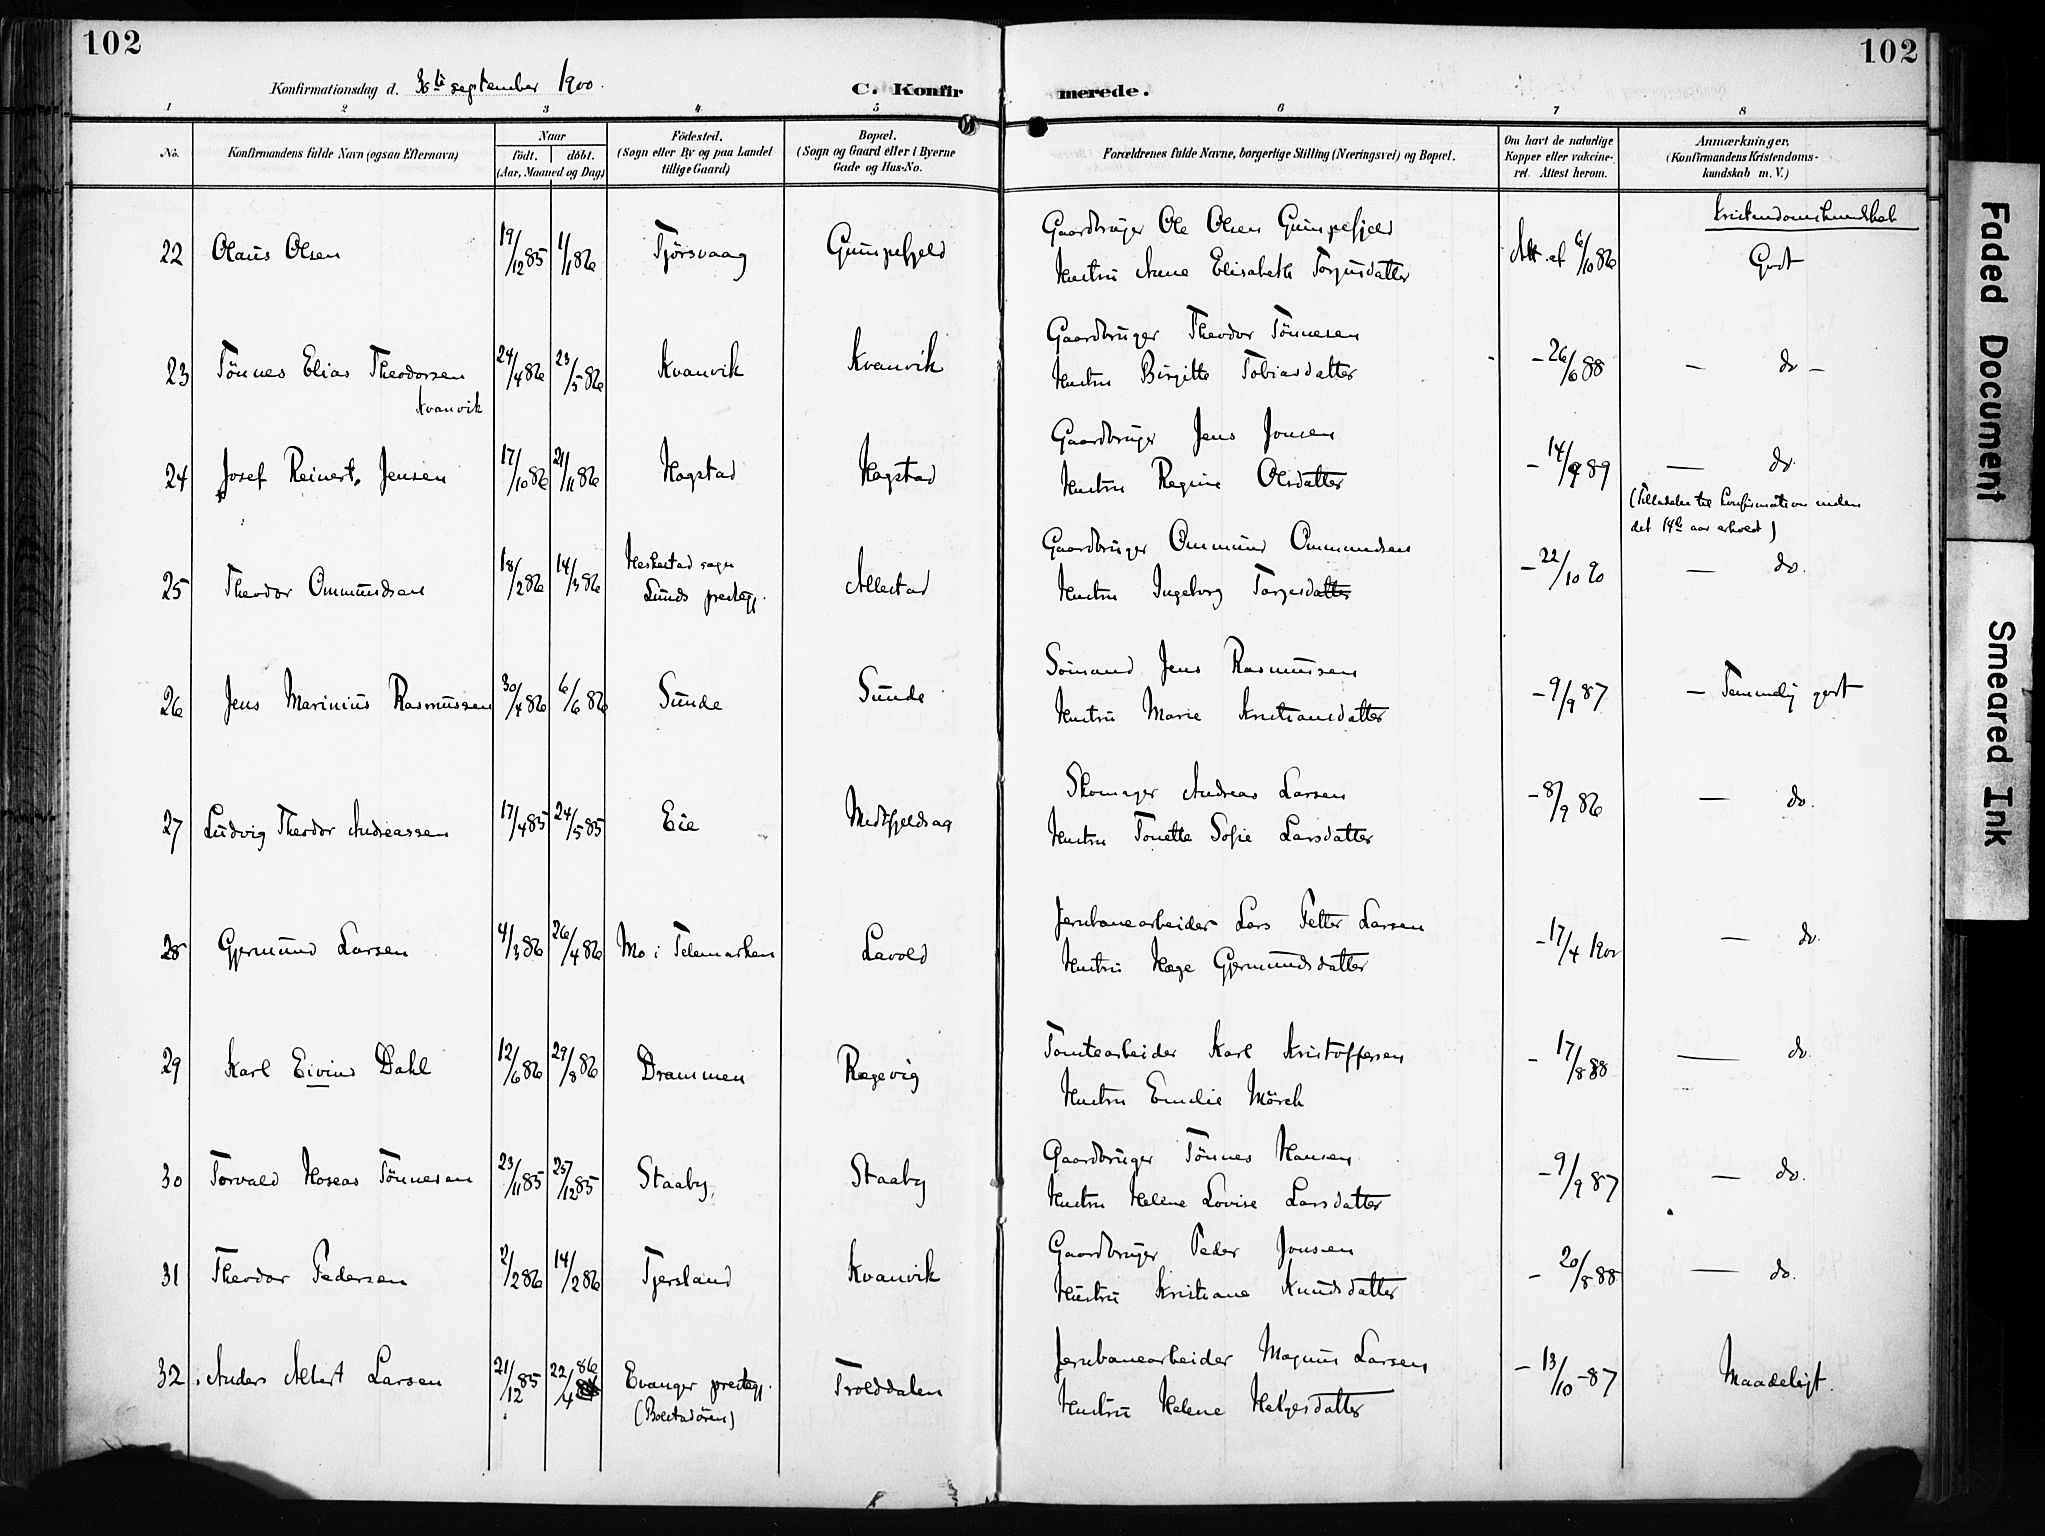 102
102
Konfirmationsdag d. 30te september 1900.
C. Konfirmerede.
1 2 3 4 5 6 7 8
No.
Konfirmandens fulde Navn (ogsaa Efternavn)
Naar
født. døbt.
(Aar, Maaned og Dag)
Fødested.
(Sogn eller By og paa Landet
tillige Gaard)
Bopæl.
(Sogn og Gaard eller i Byerne
Gade og Hus-No.
Forældrenes fulde Navne, borgerlige Stilling (Næringsvei) og Bopæl.
Om havt de naturlige
Kopper eller vakcine-
ret. Attest herom.
Anmærkninger,
(Konfirmandens Kristendoms-
kundskab m. V.)
Kristendomskundskab
22 Olaus Olsen 19/12 85 1/1 86 Tjørsvaag Gumpefjeld Gaardbruger Ole Olsen Gumpefjeld Att. af 6/10 86 Godt
Hustru Anne Elisabeth Torjusdatter
23 Tönnes Elias Theodorsen 24/4 86 23/5 86 Kvanvik Kvanvik Gaardbruger Theodor Tönnesen - 26/6 88 — do —
Kvanvik Hustru Birgitte Tobiasdatter
24 Josef Reinert Jensen 17/10 86 21/11 86 Hogstad Hogstad Gaardbruger Jens Jonsen - 14/9 89 — do.
Hustru Regine Olsdatter
(Tilladelse til Confirmation inden
det 14de aar erhvedt)
25 Theodor Ommundsen 18/2 86 14/3 86 Heskestad sogn Allestad Gaardbruger Ommund Ommundsen - 22/10 90 — do.
Lunds prestegj. Hustru Ingeborg Torgersdatter
26 Jens Marinius Rasmussen 30/4 86 6/6 86 Sunde Sunde Sömand Jens Rasmussen - 9/9 87 — Temmelig godt
Hustru Marie Kristiansdatter
27 Ludvig Theodor Andreassen 17/4 85 24/5 85 Eie Midtfjeldsaa Skomager Andreas Larsen - 8/9 86 — do.
Hustru Tonette Sofie Larsdatter
28 Gjermund Larsen 4/3 86 26/4 86 Mo i Telemarken Lavold Jernbanearbeider Lars Petter Larsen - 17/4 1900 — do.
Hustru Hæge Gjermundsdatter
29 Karl Eivind Dahl 12/6 86 29/8 86 Drammen Rægevig Tomtearbeider Karl Kristoffersen - 17/8 88 — do.
Hustru Emilie Mörch
30 Torvald Hoseas Tönnesen 23/11 85 25/12 85 Staaby Staaby Gaardbruger Tönnes Hansen - 9/9 87 — do.
Hustru Helene Lovise Larsdatter
31 Theodor Pedersen 2/2 86 14/2 86 Tjersland Kvanvik Gaardbruger Peder Jonsen - 20/8 88 — do.
Hustru Kristiane Knudsdatter
32 Anders Albert Larsen 21/12 85 22/4 86 Evanger prestegj. Trolddalen Jernbanearbeider Magnus Larsen - 13/10 - 87 Maadeligt.
(Bolstadören) Hustru Helene Helgesdatter
Faded Document
Smeared Ink